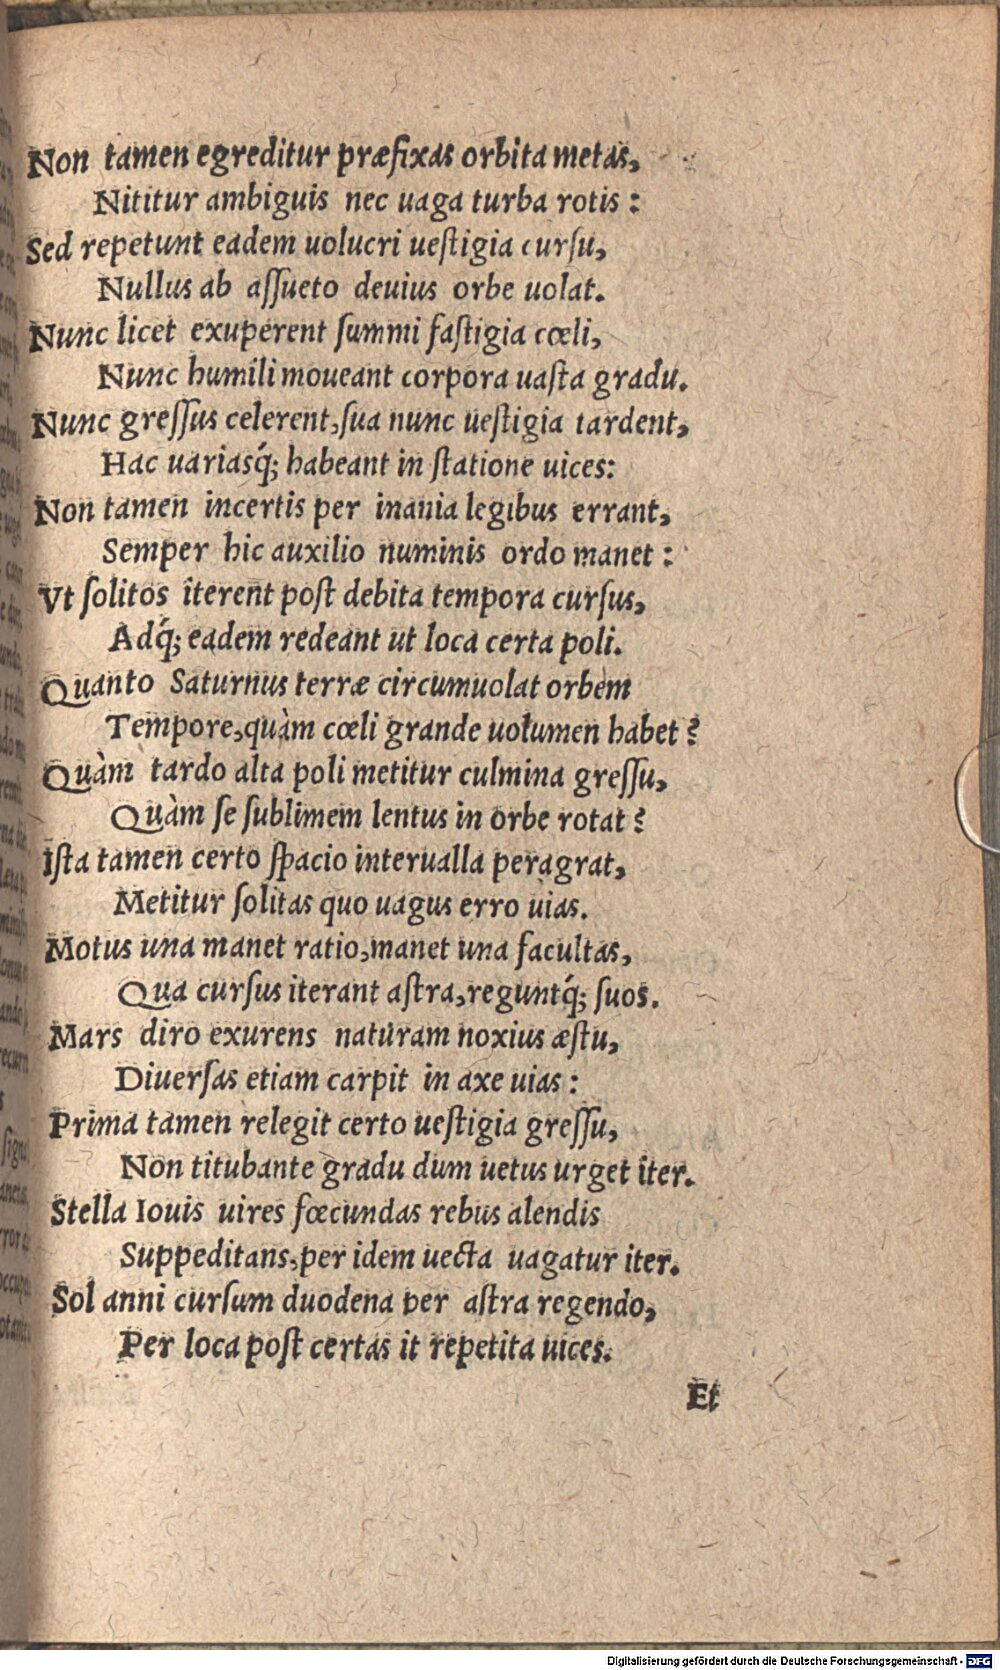 Non tamen egreditur præfixas orbita metas,
Nititur ambiguis nec uaga turba rotis :
Sed repetunt eadem uolucri ueſtigia curſu,
Nullus ab aſſueto deuius orbe uolat.
Nunc licet exuperent ſummi faſtigia cœli,
Nunc humili moueant corpora uaſta gradu.
Nunc greſſus celerent, ſua nunc ueſtigia tardent,
Hac uariasq́; habeant in ſtatione uices:
Non tamen incertis per inania legibus errant,
Semper hic auxilio numinis ordo manet :
Vt ſolitos iterent poſt debita tempora curſus,
Adq́; eadem redeant ut loca certa poli.
Quanto Saturnus terræ circumuolat orbem
Tempore, quàm cœli grande uolumen habet?
Quàm tardo alta poli metitur culmina greſſu,
Quàm ſe ſublimem lentus in orbe rotat?
Iſta tamen certo ſpacio interualla peragrat,
Metitur ſolitas quo uagus erro uias.
Motus una manet ratio, manet una facultas,
Qua curſus iterant aſtra, reguntq́; ſuos.
Mars diro exurens naturam noxius æſtu,
Diuerſas etiam carpit in axe uias :
Prima tamen relegit certo ueſtigia greſſu,
Non titubante gradu dum uetus urget iter.
Stella Iouis uires fœcundas rebus alendis
Suppeditans, per idem uecta uagatur iter.
Sol anni curſum duodena per aſtra regendo,
Per loca poſt certas it repetita uices.
Et
Digitalisierung gefördert durch die Deutsche Forschungsgemeinschaft - DFG